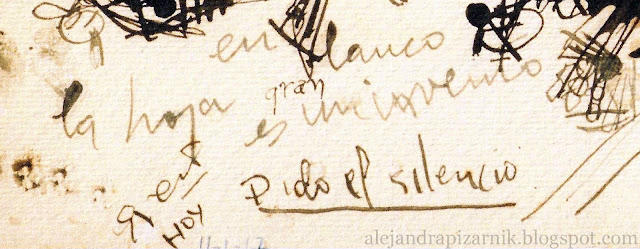 en blanco
la hoja es un invento
gran
Pido el silencio
HOY
alejandrapizarnik.blogspot.com